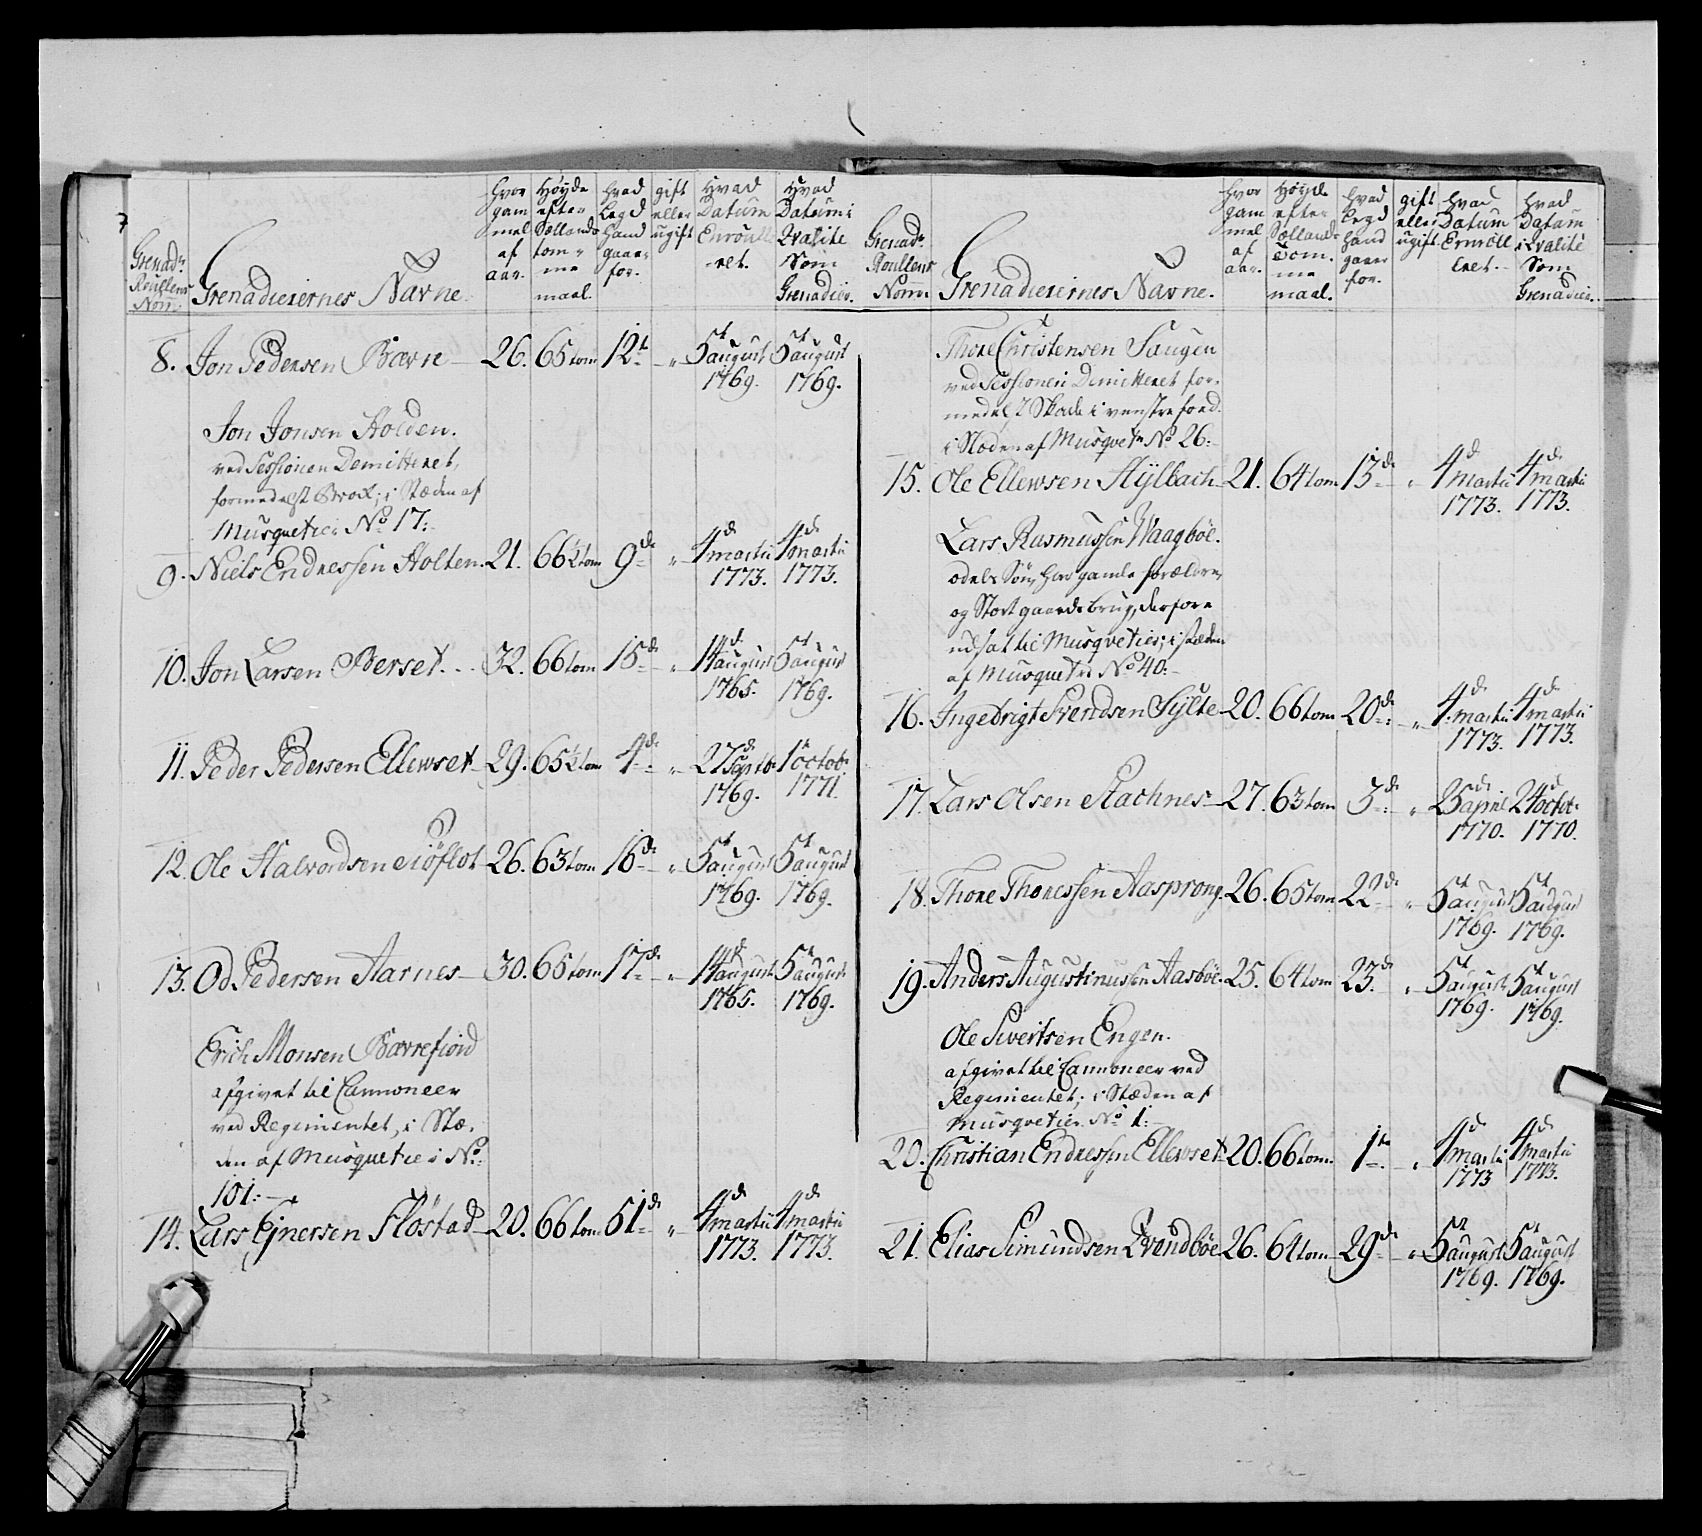 7
Grenadr Roullens Nom: Grenadierernes Navne. Hvor gam mel af aar. Höyde efter Siellands tom= me maal. Hvad Legd Hand gaaer for. gift eller ugift Hvad Datum Enroulle ret. Hvad Datum: Qvalite Som Grenadier.
8. Jon Pedersen Bævre 26. 65 tom 12t „ 5t august 1769. 5t august 1769.
Jon Jonsen Holden.
ved Sessionen Demitteret,
formedelst Brock, i Stæden af
Musquetier No 17:
9. Niels Endressen Holten. 21. 66½ tom 9de „ 4d martii 1773. 4d martii 1773.
10. Jon Larsen Berset. 32. 66 tom 15de „ 14d august 1765. 5t august 1769.
11. Peder Pedersen Ellewset 29. 65½ tom 4de „ 27d Septbr 1769. 1t octobr 1771.
12. Ole Halvordsen Siöflot 26. 63 tom 16de „ 5t august 1769. 5t august 1769.
13. Od Pedersen Aarnes 30. 65 tom 17de „ 14d august 1765. 5t august 1769.
Erich Monsen Bævrefiord
afgivet til Cannoneer
ved Regimentet, i Stæ-
den af Musquetier No:
101:
14. Lars Ejnersen Flöstad 20. 66 tom 51de „ 4d martii 1773. 4d martii 1773.
Grenadr Roullens Nom: Grenadierernes Navne. Hvor gam mel af aar. Höyde efter Siellands Tom. me maal. Hvad Legd Hand gaaer for. gift eller ugift. Hvad Datum Ernröll eret. Hvad Datum i Qvalité Som Grenadier.
Thore Christensen Saugen
ved Sessionen Demitteret for-
medelst Skade i venstre foed.
i Stæden af Musqvetr No 26:
15. Ole Ellewsen Hylbach 21. 64 tom 13de „ 4d martii 1773. 4d martii 1773.
Lars Rasmussen Waagböe.
odels Sön, har gamle forældre,
og Stort gaards brug, derfore
udsat til Musqvetier, i stæden
af Musquetr No 40:
16. Ingebrigt Svendsen Sylte 20. 66 tom 20de „ 4d martii 1773. 4d martii 1773.
17. Lars Olsen Stachnes 27. 63 tom 3de „ 25d april 1770. 24d octobr 1770.
18. Thore Thoressen Aasprong. 26. 65 tom 22de „ 5t august 1769. 5t august 1769.
19. Anders Augustinussen Aasböe. 25. 64 tom 23de „ 5t august 1769. 5t august 1769.
Ole Sivertsen Engen.
afgivet til Cannoneer ved
Regimentet, i Stæden af
Musqvetier No 1:
20. Christian Endressen Ellewset 20. 66 tom 1te „ 4d martii 1773 4d martii 1773.
21. Elias Simundsen Qvendböe 26. 64 tom 29de „ 5t august 1769. 5t august 1769.